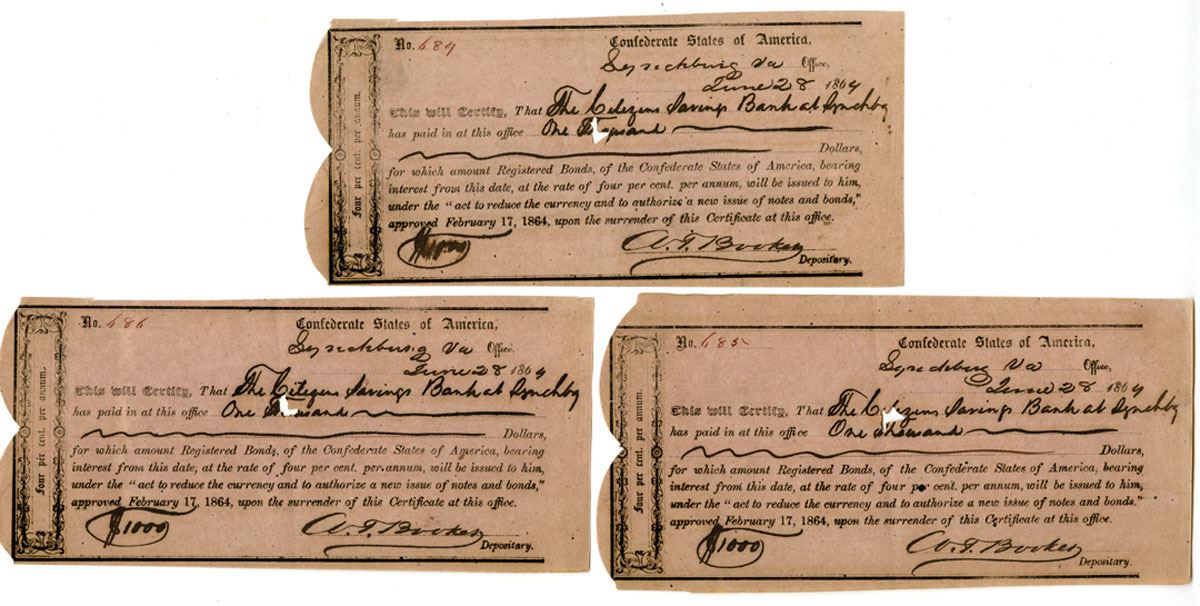 No. 684
Confederate States of America,
Lynchburg Va Office,
June 28 1864
This will Certify, That The Citizens Savings Bank at Lynchbg
has paid in at this office One Thousand
Dollars,
for which amount Registered Bonds, of the Confederate States of America, bearing
interest from this date, at the rate of four per cent. per annum, will be issued to him,
under the "act to reduce the currency and to authorize a new issue of notes and bonds,"
approved February 17, 1864, upon the surrender of this Certificate at this office.
$1000
A. F. Booker
Depositary.
Four per cent. per annum.
No. 686
Confederate States of America,
Lynchburg Va Office,
June 28 1864
This will Certify, That The Citizens Savings Bank at Lynchbg
has paid in at this office One Thousand
Dollars,
for which amount Registered Bonds, of the Confederate States of America, bearing
interest from this date, at the rate of four per cent. per annum, will be issued to him,
under the "act to reduce the currency and to authorize a new issue of notes and bonds,"
approved February 17, 1864, upon the surrender of this Certificate at this office.
$1000
A. F. Booker
Depositary.
Four per cent. per annum.
No. 685
Confederate States of America,
Lynchburg Va Office,
June 28 1864
This will Certify, That The Citizens Savings Bank at Lynchbg
has paid in at this office One thousand
Dollars,
for which amount Registered Bonds, of the Confederate States of America, bearing
interest from this date, at the rate of four per cent. per annum, will be issued to him,
under the "act to reduce the currency and to authorize a new issue of notes and bonds."
approved February 17, 1864, upon the surrender of this Certificate at this office.
$1000
A. F. Booker
Depositary.
Four per cent. per annum.